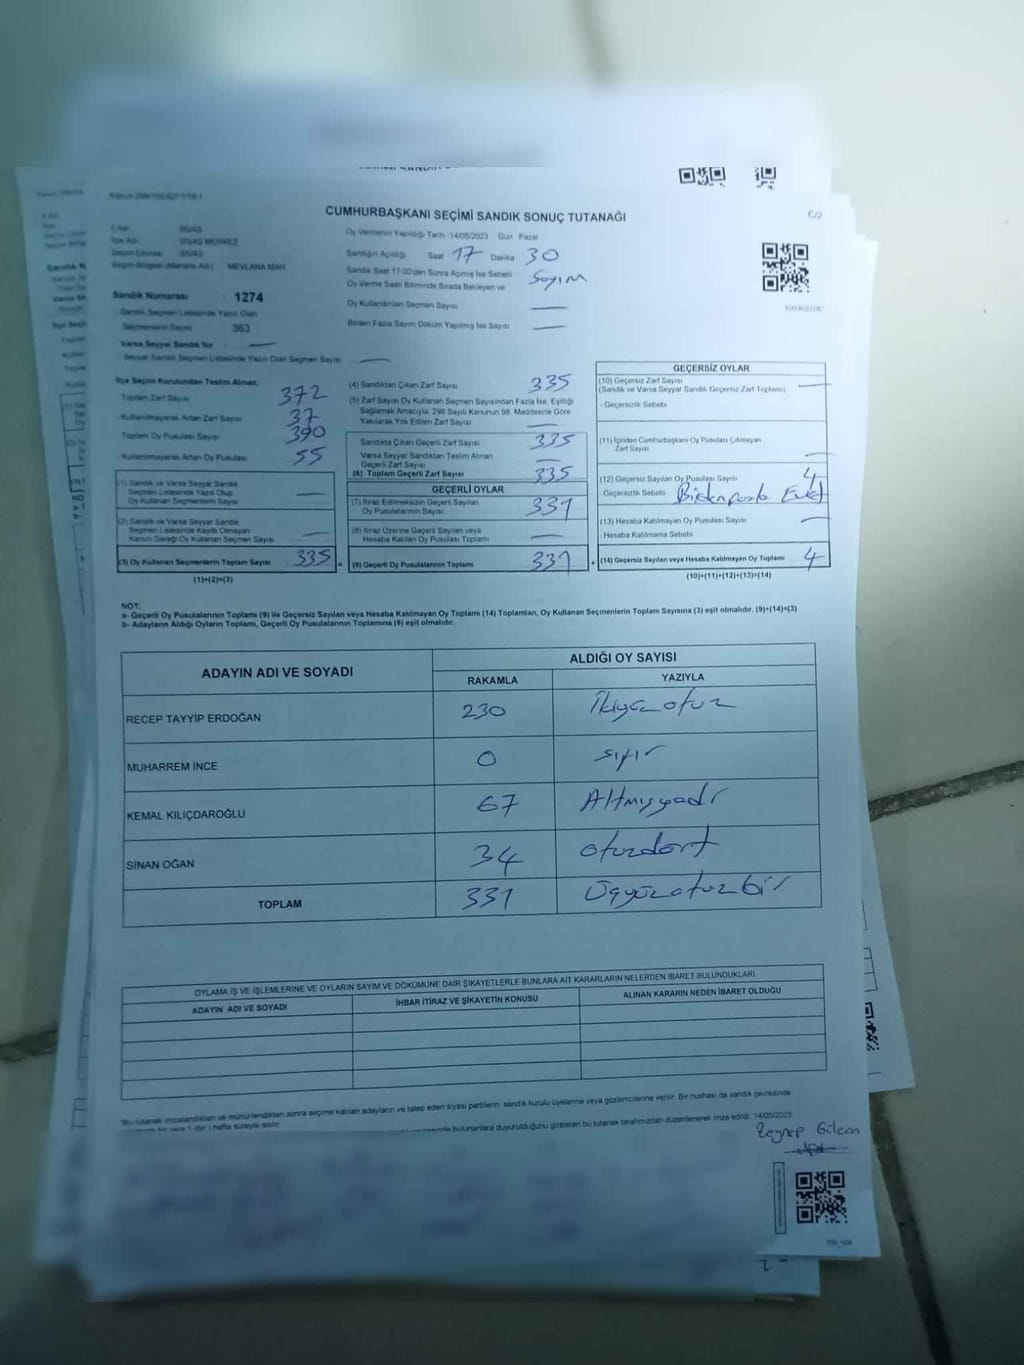 CUMHURBAŞKANI SEÇİMİ SANDIK SONUÇ TUTANAĞI
C/2
İli Adı : SİVAS
İlçe Adı : SİVAS MERKEZ
Seçim Çevresi : SİVAS
MEVLANA MAH
Sandık Numarası : 1274
Sandık Seçmen Listesinde Yazılı Olan
Seçmenlerin Sayısı : 363
Varsa Seyyar Sandık No
Seyyar Sandık Seçmen Listesinde Yazılı Olan Seçmen Sayısı
Oy Vermenin Yapıldığı Tarih 14/05/2023 Gün Pazar
Sandığın Açıldığı Saat 17 Dakika 30
Sandık Saat 17:00'den Sonra Açmış İse Sebebi Sayım
Oy Verme Saati Bitiminde Sırada Bekleyen ve
Oy Kullandırılan Seçmen Sayısı
Birden Fazla Sayım Döküm Yapılmış İse Sayısı
İlçe Seçim Kurulundan Teslim Alınan;
Toplam Zarf Sayısı 372
Kullanılmayarak Artan Zarf Sayısı 37
Toplam Oy Pusulası Sayısı 390
Kullanılmayarak Artan Oy Pusulası 55
(1) Sandık ve Varsa Seyyar Sandık
Seçmen Listesinde Yazılı Olup
Oy Kullanan Seçmenlerin Sayısı
(2) Sandık ve Varsa Seyyar Sandık
Seçmen Listesinde Kayıtlı Olmayan
Kanun Gereği Oy Kullanan Seçmen Sayısı
(3) Oy Kullanan Seçmenlerin Toplam Sayısı 335
(1)+(2)=(3)
(4) Sandıktan Çıkan Zarf Sayısı 335
(5) Zarf Sayısı Oy Kullanan Seçmen Sayısından Fazla İse, Eşitliği
Sağlamak Amacıyla, 298 Sayılı Kanunun 98. Maddesine Göre
Yakılarak Yok Edilen Zarf Sayısı
Sandıkta Çıkan Geçerli Zarf Sayısı 335
Varsa Seyyar Sandıktan Teslim Alınan
Geçerli Zarf Sayısı
(6) Toplam Geçerli Zarf Sayısı 335
GEÇERLİ OYLAR
(7) İtiraz Edilmeksizin Geçerli Sayılan
Oy Pusulalarının Sayısı 331
(8) İtiraz Üzerine Geçerli Sayılan veya
Hesaba Katılan Oy Pusulası Toplamı
(9) Geçerli Oy Pusulalarının Toplamı 331
GEÇERSİZ OYLAR
(10) Geçersiz Zarf Sayısı
(Sandık ve Varsa Seyyar Sandık Geçersiz Zarf Toplamı)
- Geçersizlik Sebebi
(11) İçinden Cumhurbaşkanı Oy Pusulası Çıkmayan
Zarf Sayısı
(12) Geçersiz Sayılan Oy Pusulası Sayısı 4
Geçersizlik Sebebi
(13) Hesaba Katılmayan Oy Pusulası Sayısı
- Hesaba Katılmama Sebebi
(14) Geçersiz Sayılan veya Hesaba Katılmayan Oy Toplamı 4
(10)+(11)+(12)+(13)=(14)
NOT:
a- Geçerli Oy Pusulalarının Toplamı (9) ile Geçersiz Sayılan veya Hesaba Katılmayan Oy Toplamı (14) Toplamları, Oy Kullanan Seçmenlerin Toplam Sayısına (3) eşit olmalıdır. (9)+(14)=(3)
b- Adayların Aldığı Oyların Toplamı, Geçerli Oy Pusulalarının Toplamına (9) eşit olmalıdır.
ADAYIN ADI VE SOYADI
ALDIĞI OY SAYISI
RAKAMLA YAZIYLA
RECEP TAYYİP ERDOĞAN 230 İkiyüzotuz
MUHARREM İNCE 0 sıfır
KEMAL KILIÇDAROĞLU 67 Altmışyedi
SİNAN OĞAN 34 otuzdört
TOPLAM 331 Üçyüzotuzbir
OYLAMA İŞ VE İŞLEMLERİNE VE OYLARIN SAYIM VE DÖKÜMÜNE DAİR ŞİKAYETLERLE BUNLARA AİT KARARLARIN NELERDEN İBARET BULUNDUKLARI
ADAYIN ADI VE SOYADI İHBAR İTİRAZ VE ŞİKAYETİN KONUSU ALINAN KARARIN NEDEN İBARET OLDUĞU
"Bu tutanak imzalandıktan ve mühürlendikten sonra seçime katılan adayların ve talep eden siyasi partilerin sandık kurulu üyelerine veya gözlemcilerine verilir. Bir nüshası da sandık çevresinde
bulunanlara duyurulduğunu gösteren bu tutanak tarafımızdan düzenlenerek imza edildi. 14/05/2023
Zeynep Gülcan